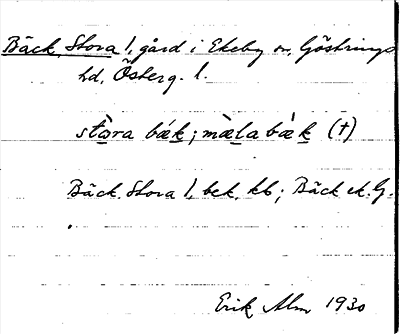 Bäck, Stora 1, gård i Ekeby sn, Göstrings
hd, Österg. l.
stọra bák; mæ̀la bàk (†)
Bäck. Stora 1, bek. kb; Bäck ek. G.
Erik Alm 1930